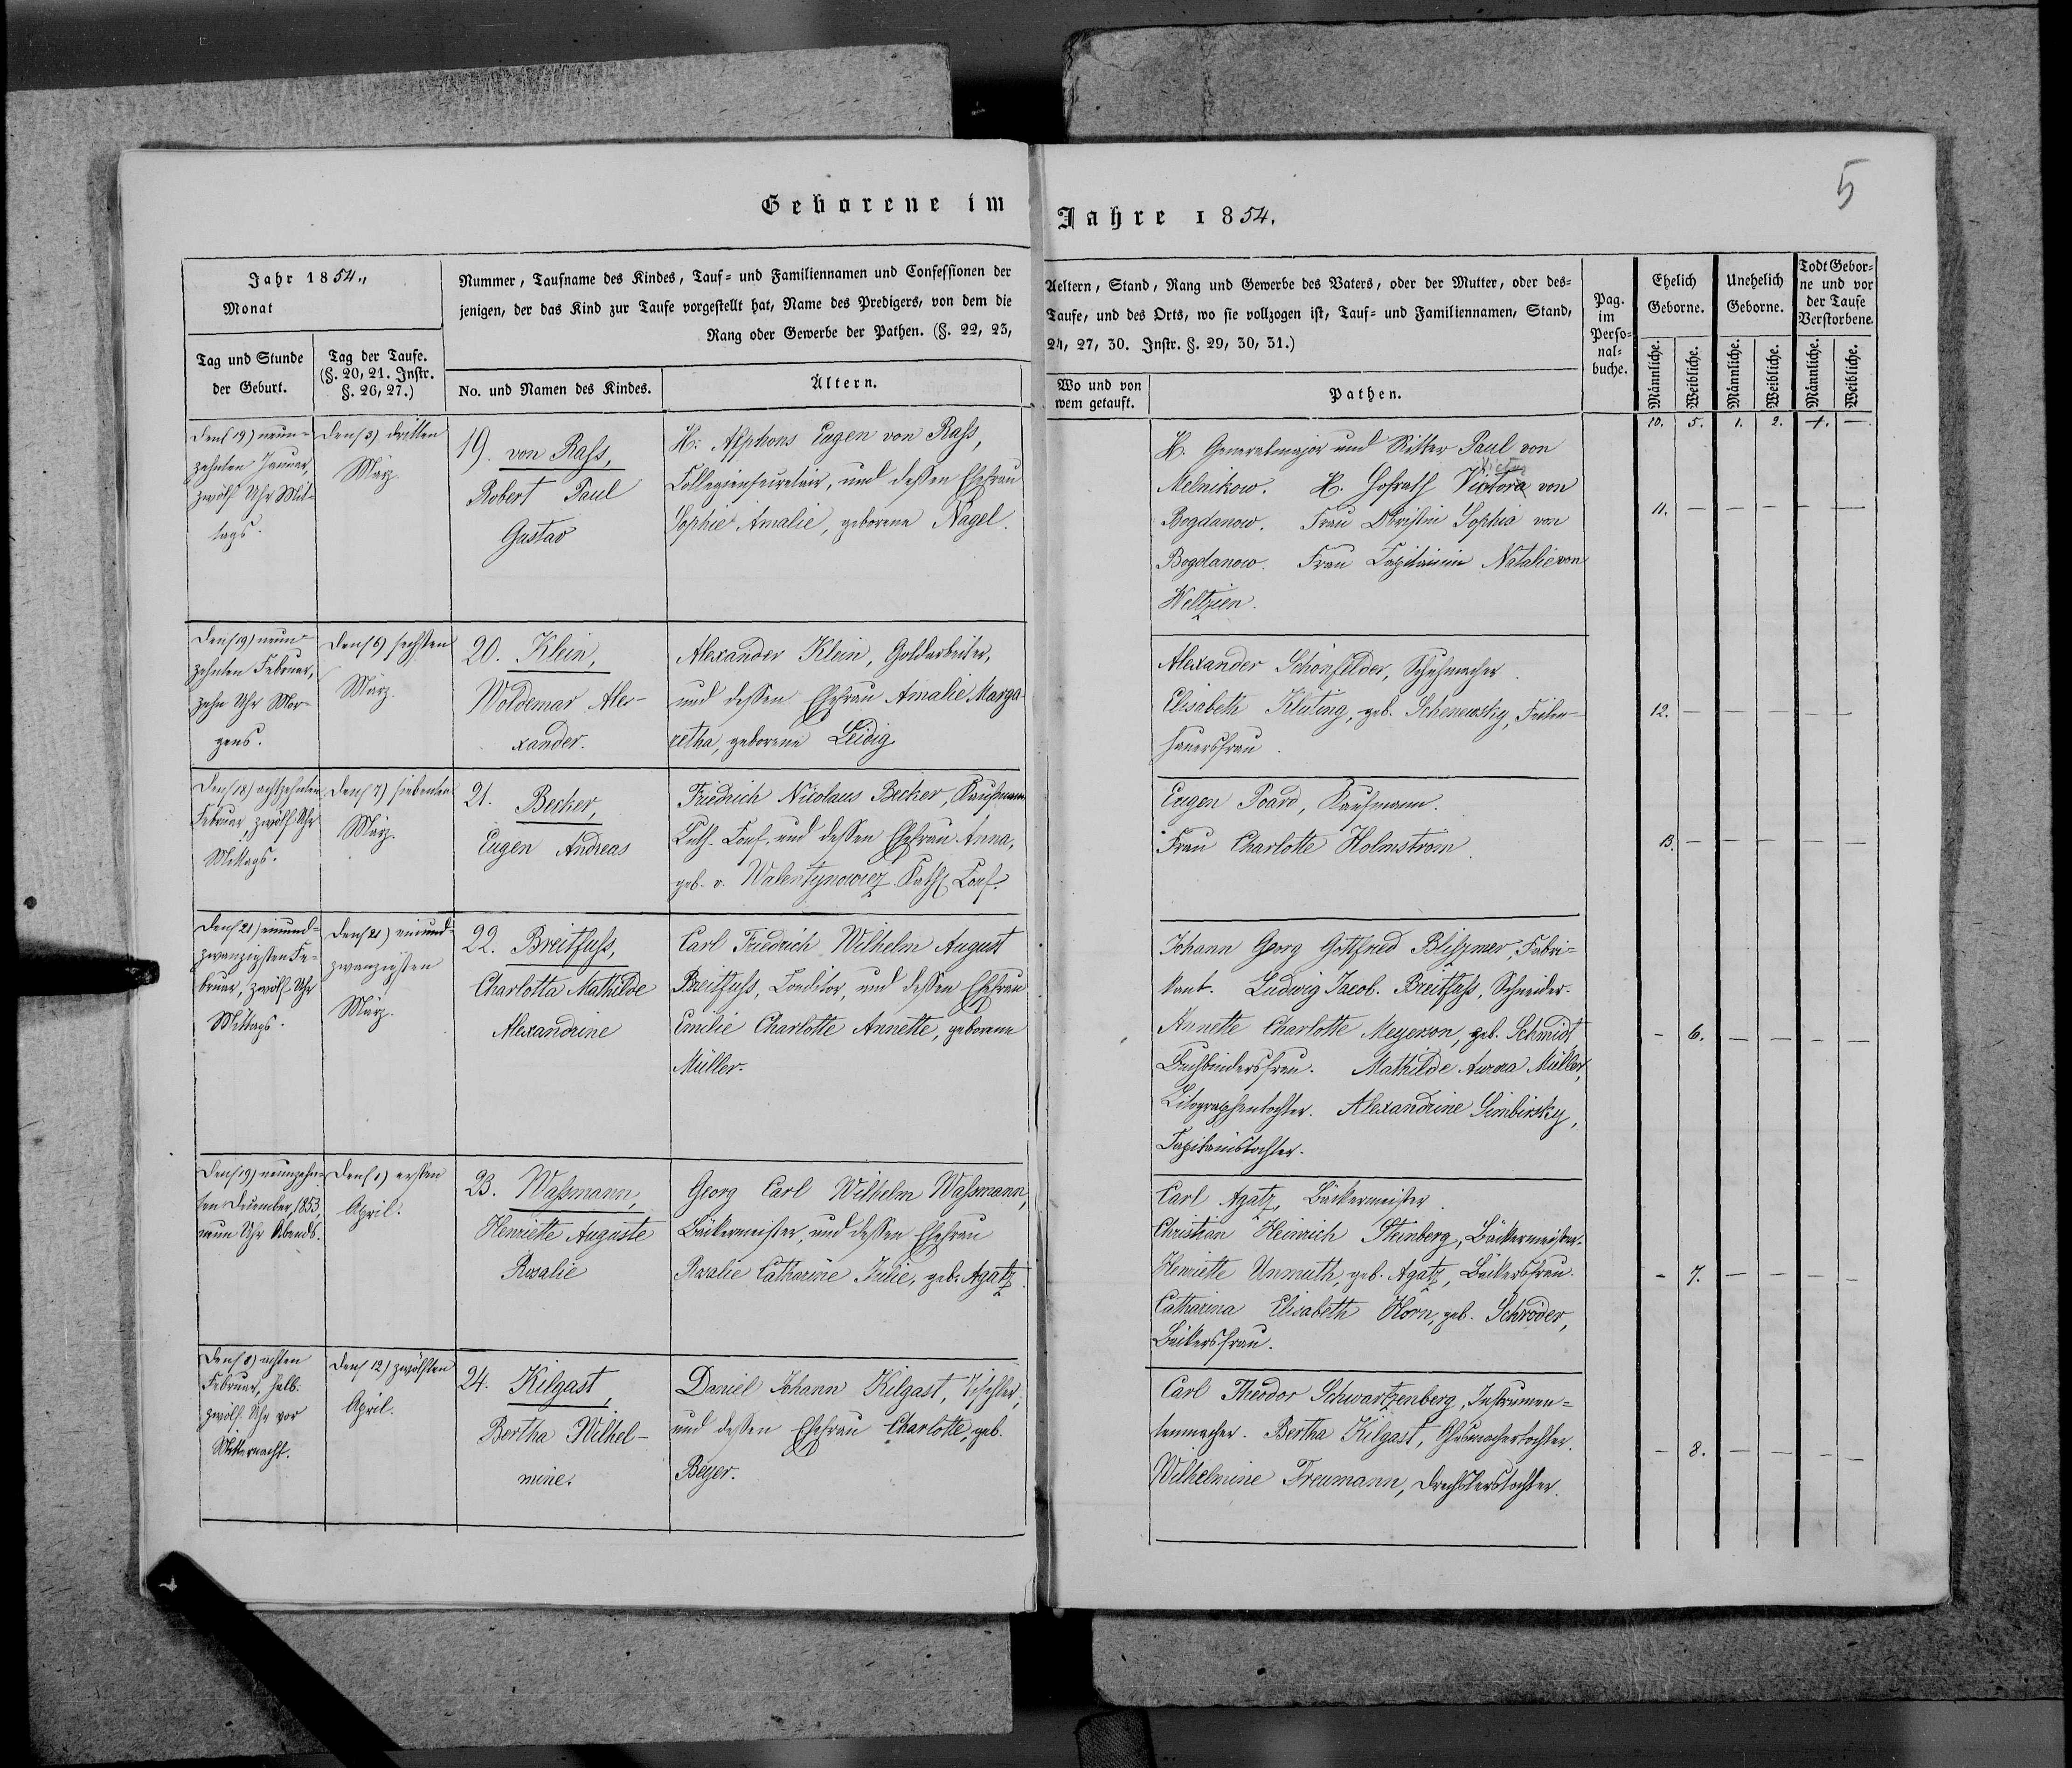 Geborene im Jahre 1854.
5
Jahr 1854.
Monat
Tag und Stunde
der Geburt.
Tag der Taufe.
(§. 20, 21. Instr.
§. 26, 27.)
Nummer, Taufname des Kindes, Tauf- und Familiennamen und Confessionen der
jenigen, der das Kind zur Taufe vorgestellt hat, Name des Predigers, von dem die
Rang oder Gewerbe der Pathen. (§. 22, 23,
No. und Namen des Kindes.
Ältern.
Aeltern, Stand, Rang und Gewerbe des Vaters, oder der Mutter, oder des-
Taufe, und des Orts, wo sie vollzogen ist, Tauf- und Familiennamen, Stand,
24, 27, 30. Instr. §. 29, 30, 31.)
Wo und von
wem getauft.
Pathen.
Pag.
im
Perso-
nal-
buche.
Ehelich
Geborne.
Unehelich
Geborne.
Todt Gebor-
ne und vor
der Taufe
Verstorbene.
Männliche.
Weibliche.
Männliche.
Weibliche.
Männliche.
Weibliche.
10. 5. 1. 2. 1. —
Den (19) neun-
zehnten Januar,
zwölf Uhr Mit-
tags.
Den (3) dritten
März.
19. von Rass,
Robert Paul
Gustav
H. Alphons Eugen von Rass,
Collegiensecretair, und dessen Ehefrau
Sophie Amalie, geborene Nagel.
H. Generalmajor und Ritter Paul von
Victor
Melnikow. H. Hofrath Victora von
Bogdanow. Frau Obristin Sophia von
Bogdanow. Frau Capitainin Natalie von
Weltzien.
11. — — — — —
Den (19) neun-
zehnten Februar,
zehn Uhr Mor-
gens.
Den (6) sechsten
März.
20. Klein,
Woldemar Ale-
xander.
Alexander Klein, Goldarbeiter,
und dessen Ehefrau Amalie Marga-
retha, geborene Leidig
Alexander Schönfelder, Schuhmacher.
Elisabeth Klüting, geb. Schenewsky, Feilen-
hauersfrau.
12. — — — — —
Den (18) achtzehnten
Februar, zwölf Uhr
Mittags.
Den (7) siebenten
März.
21. Becker,
Eugen Andreas
Friedrich Nicolaus Becker, Kaufmann
Luth. Conf. und dessen Ehefrau Anna,
geb. v. Walentynowicz. Kath. Conf.
Eugen Poard, Kaufmann.
Frau Charlotte Holmstrom.
13. — — — — —
Den (21) einund-
zwanzigsten Fe-
bruar, zwölf Uhr
Mittags.
Den (21) einund-
zwanzigsten
März.
22. Breitfuss,
Charlotta Mathilde
Alexandrine
Carl Friedrich Wilhelm August
Breitfuss, Conditor, und dessen Ehefrau
Emilie Charlotte Annette, geborene
Müller.
Johann Georg Gottfried Blissmer, Fabri-
kant. Ludwig Jacob Breitfuss, Schneider.
Annette Charlotte Meyerson, geb. Schmidt,
Buchbindersfrau. Mathilde Aurora Müller,
Litographentochter. Alexandrine Simbirsky,
Capitainstochter.
— 6. — — — —
Den (19) neunzehn-
ten December, 1853,
neun Uhr Abends.
Den (1) ersten
April.
23. Wassmann,
Henriette Auguste
Rosalie
Georg Carl Wilhelm Wassmann,
Bäckermeister, und dessen Ehefrau
Rosalie Catharine Julie, geb. Agatz.
Carl Agatz, Bäckermeister.
Christian Heinrich Steinberg, Bäckermeister.
Henriette Unmuth, geb. Agatz, Bäckersfrau.
Catharina Elisabeth Horn, geb. Schröder,
Bäckersfrau.
— 7. — — — —
Den (8) achten
Februar, halb
zwölf Uhr vor
Mitternacht.
Den (12) zwölften
April.
24. Kilgast,
Bertha Wilhel-
mine.
Daniel Johann Kilgast, Tischler,
und dessen Ehefrau Charlotte, geb.
Beyer.
Carl Theodor Schwartzenberg, Instrumen-
tenmacher. Bertha Kilgast, Uhrmachertochter.
Wilhelmine Freumann, Drechslerstochter.
— 8. — — — —